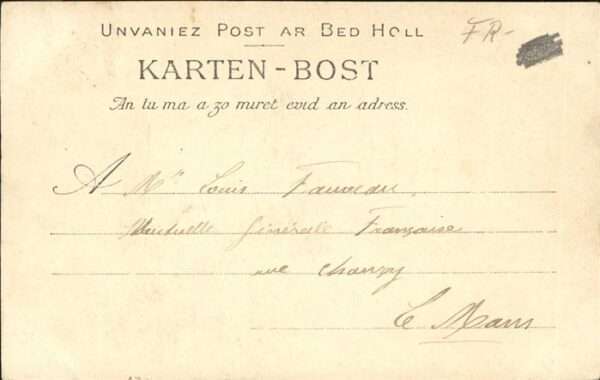 UNVANIEZ POST AR BED HOLL
FR-
KARTEN-BOST
An tu ma a zo miret evid an adress.
A Mr Louis Fauveau
Mutuelle Générale Française
rue Chanzy
Le Mans